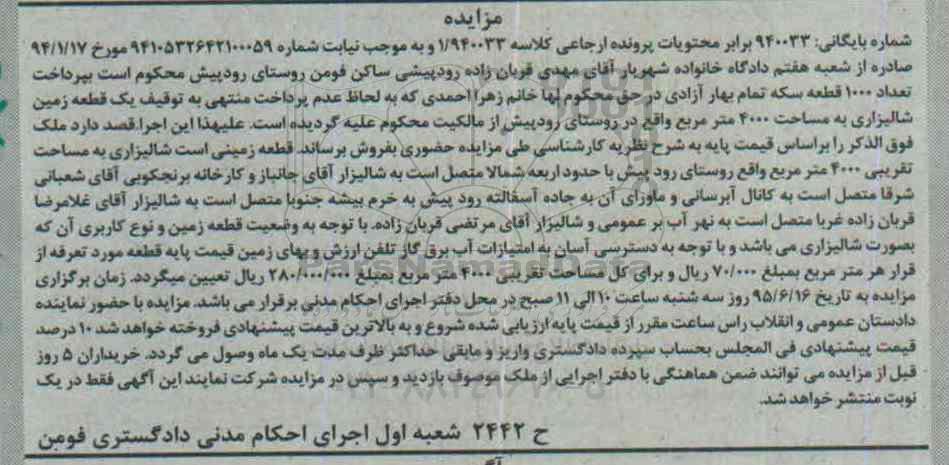 مزایده
شماره بایگانی: ۹۴۰۰۳۳ برابر محتویات پرونده ارجاعی کلاسه ۱/۹۴۰۰۳۳ و به موجب نیابت شماره ۹۴۱۰۵۳۲۶۴۲۱۰۰۰۵۹ مورخ ۹۴/۱/۱۷
صادره از شعبه هفتم دادگاه خانواده شهریار آقای مهدی قربان زاده رودپیشی ساکن فومن روستای رودپیش محکوم است بپرداخت
تعداد ۱۰۰۰ قطعه سکه تمام بهار آزادی در حق محکوم لها خانم زهرا احمدی که به لحاظ عدم پرداخت منتهی به توقیف یک قطعه زمین
شالیزاری به مساحت ۴۰۰۰ متر مربع واقع در روستای رودپیش از مالکیت محکوم علیه گردیده است. علیهذا این اجرا قصد دارد ملک
فوق الذکر را براساس قیمت پایه به شرح نظریه کارشناسی طی مزایده حضوری بفروش برساند. قطعه زمینی است شالیزاری به مساحت
تقریبی ۴۰۰۰ متر مربع واقع روستای رود پیش با حدود اربعه شمالا متصل است به شالیزار آقای جانباز و کارخانه برنجکوبی آقای شعبانی
شرقا متصل است به کانال آبرسانی و ماورای آن به جاده آسفالته رود پیش به خرم بیشه جنوبا متصل است به شالیزار آقای غلامرضا
قربان زاده غربا متصل است به نهر آب بر عمومی و شالیزار آقای مرتضی قربان زاده. با توجه به وضعیت قطعه زمین و نوع کاربری آن که
بصورت شالیزاری می باشد و با توجه به دسترسی آسان به امتیازات آب برق گاز تلفن ارزش و بهای زمین قیمت پایه قطعه مورد تعرفه از
قرار هر متر مربع بمبلغ ۷۰/۰۰۰ ریال و برای کل مساحت تقریبی ۴۰۰۰ متر مربع بمبلغ ۲۸۰/۰۰۰/۰۰۰ ریال تعیین میگردد. زمان برگزاری
مزایده به تاریخ ۹۵/۶/۱۶ روز سه شنبه ساعت ۱۰ الی ۱۱ صبح در محل دفتر اجرای احکام مدنی برقرار می باشد. مزایده با حضور نماینده
دادستان عمومی و انقلاب راس ساعت مقرر از قیمت پایه ارزیابی شده شروع و به بالاترین قیمت پیشنهادی فروخته خواهد شد ۱۰ درصد
قیمت پیشنهادی فی المجلس بحساب سپرده دادگستری واریز و مابقی حداکثر ظرف مدت یک ماه وصول می گردد. خریداران ۵ روز
قبل از مزایده می توانند ضمن هماهنگی با دفتر اجرایی از ملک موصوف بازدید و سپس در مزایده شرکت نمایند این آگهی فقط در یک
نوبت منتشر خواهد شد.
ح ۲۴۴۲ شعبه اول اجرای احکام مدنی دادگستری فومن